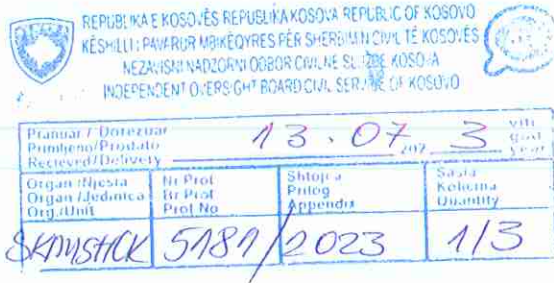 REPUBLIKA E KOSOVËS REPUBLIKA KOSOVA REPUBLIC OF KOSOVO
KËSHILLI I PAVARUR MBIKËQYRËS PËR SHËRBIMIN CIVIL TË KOSOVËS
NEZAVISNI NADZORNI ODBOR CIVILNE SLUŽBE KOSOVA
INDEPENDENT OVERSIGHT BOARD CIVIL SERVICE OF KOSOVO
Pranuar / Dorëzuar
Primljeno/Prodato
Recieved/Delivety
13.07 202 3
viti
god
year
Organ /Njësia
Organ /Jedinica
Org./Unit
Nr Prot
Br Prot
Prot No
Shtojca
Prilog
Appendix
Sasia
Kolicina
Quantity
5181/2023 1/3